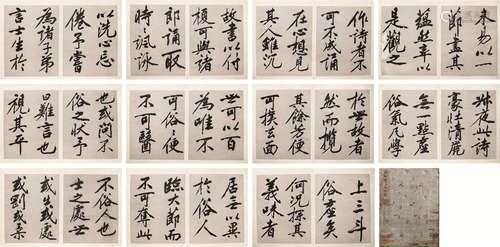 未易以一
節蓋其
蘊然率以
是觀之
作詩者不
可不成誦
在心想見
其人雖沉
故書以付
榎可與諸
郎誦取
時時諷詠
以洗心忘
倦予嘗
為諸子弟
言士生於
叔夜此詩
豪壯清麗
無一點塵
俗氣凡學
於世故者
然而攬
其餘芳便
可撲去面
世可以百
為唯不
可俗〻便
不可醫
也或問不
俗之狀予
曰難言也
視其平
上三斗
俗塵矣
何況探其
義味者
居無以異
於俗人
臨大節而
不可奪此
不俗人也
士之處世
或出或處
或剛或柔